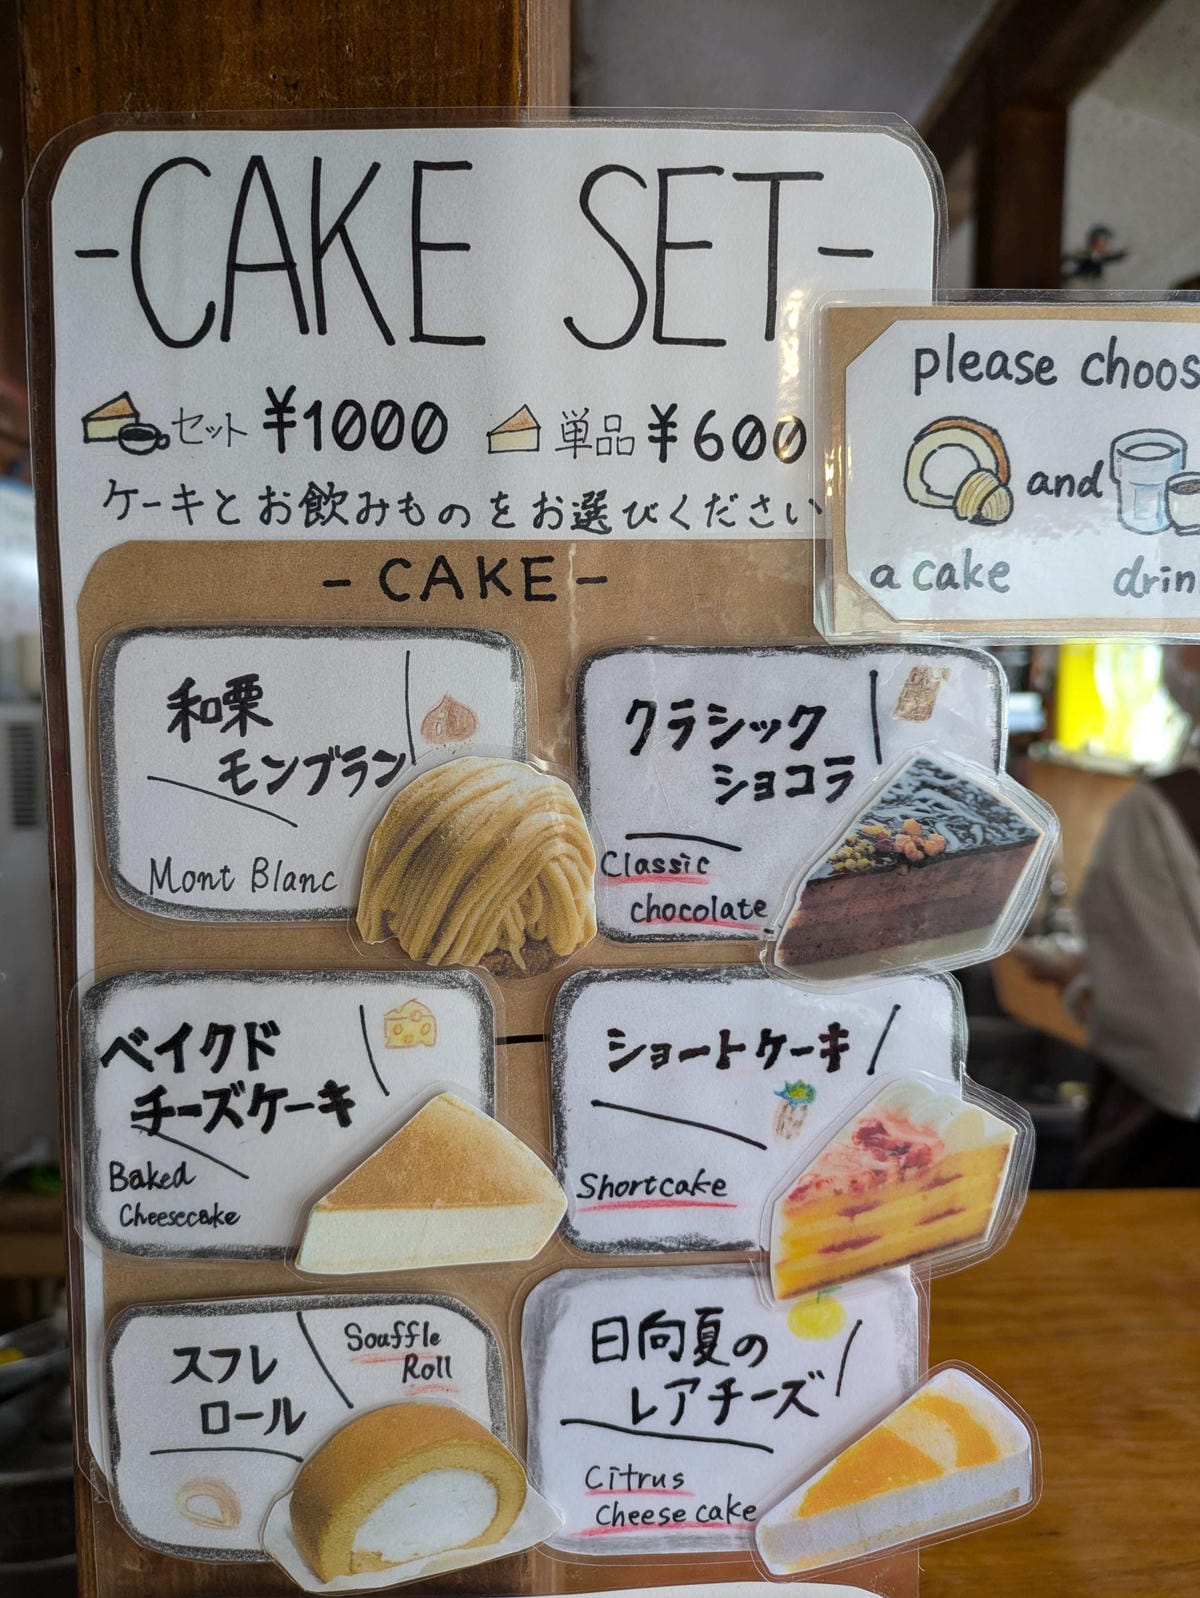 -CAKE SET-
セット ¥1000 単品 ¥600
ケーキとお飲みものをお選びください
please choos
and
a cake
drin
- CAKE -
和栗
モンブラン
Mont Blanc
クラシック
ショコラ
Classic
chocolate
ベイクド
チーズケーキ
Baked
Cheesecake
ショートケーキ
Shortcake
スフレ
ロール
Souffle
Roll
日向夏の
レアチーズ
Citrus
Cheese cake